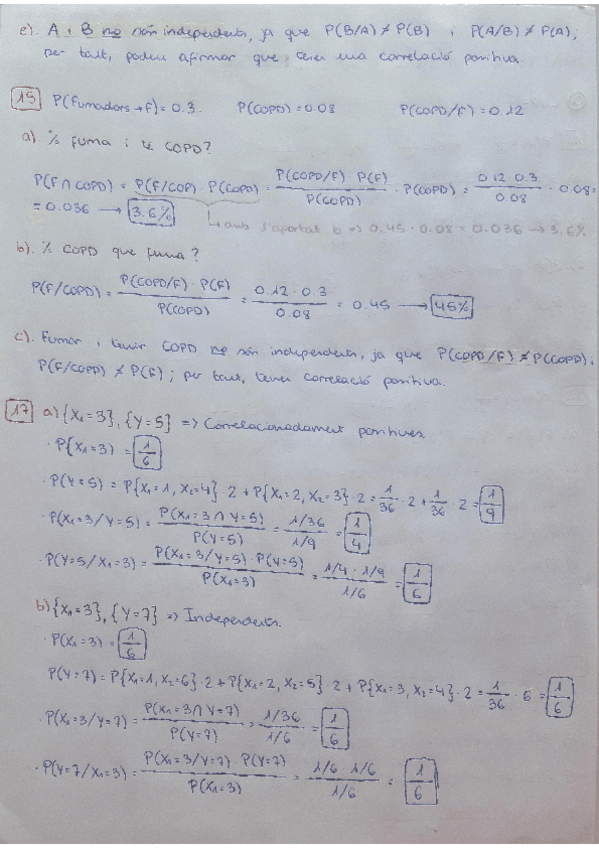 e). A i B no són independents, ja que P(B/A) ≠ P(B) i P(A/B) ≠ P(A);
per tant, podem afirmar que tenen una correlació positiva.
15 P(Fumadors → F) = 0.3 P(COPD) = 0.08 P(COPD/F) = 0.12
a). % Fuma i té COPD?
P(F ∩ COPD) = P(F/COP) · P(COPD) = P(COPD/F) · P(F) / P(COPD) · P(COPD) = 0.12 · 0.3 / 0.08 · 0.08 =
= 0.036 → 3.6%
↳ amb l'apartat b => 0.45 · 0.08 = 0.036 → 3.6%
b). % COPD que fuma?
P(F/COPD) = P(COPD/F) · P(F) / P(COPD) = 0.12 · 0.3 / 0.08 = 0.45 → 45%
c). Fumar i tenir COPD no són independents, ja que P(COPD/F) ≠ P(COPD) i
P(F/COPD) ≠ P(F); per tant, tenen correlació positiva.
17 a) {X₁=3}, {Y=5} => Correlacionadament positives.
· P{X₁=3) = 1/6
· P(Y=5) = P{X₁=1, X₂=4} · 2 + P{X₁=2, X₂=3} · 2 = 1/36 · 2 + 1/36 · 2 = 1/9
· P(X₁=3/Y=5) = P(X₁=3 ∩ Y=5) / P(Y=5) = 1/36 / 1/9 = 1/4
· P(Y=5/X₁=3) = P(X₁=3/Y=5) · P(Y=5) / P(X₁=3) = 1/4 · 1/9 / 1/6 = 1/6
b) {X₁=3}, {Y=7} => Independents.
· P(X₁=3) = 1/6
P(Y=7) = P{X₁=1, X₂=6} · 2 + P{X₁=2, X₂=5} · 2 + P{X₁=3, X₂=4} · 2 = 1/36 · 6 = 1/6
· P(X₁=3/Y=7) = P(X₁=3 ∩ Y=7) / P(Y=7) = 1/36 / 1/6 = 1/6
· P(Y=7/X₁=3) = P(X₁=3/Y=7) · P(Y=7) / P(X₁=3) = 1/6 · 1/6 / 1/6 = 1/6